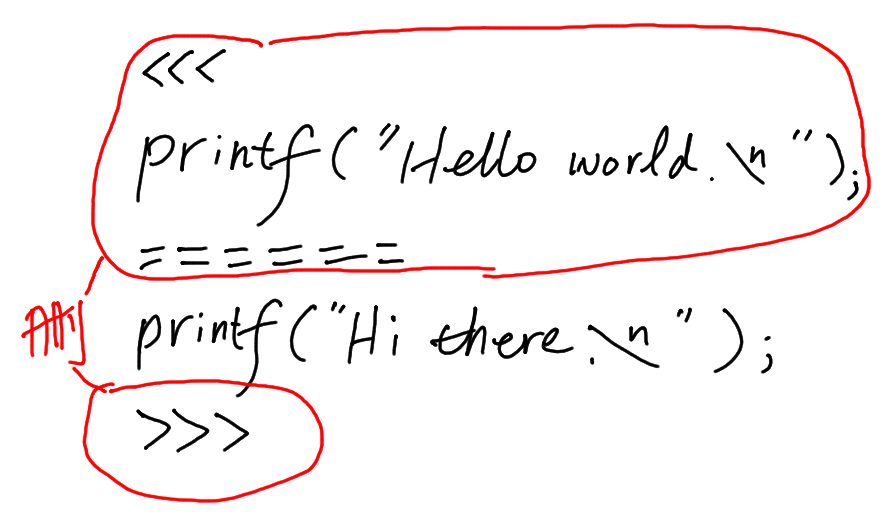 <<<
printf("Hello world.\n");
======
删
printf("Hi there.\n");
>>>